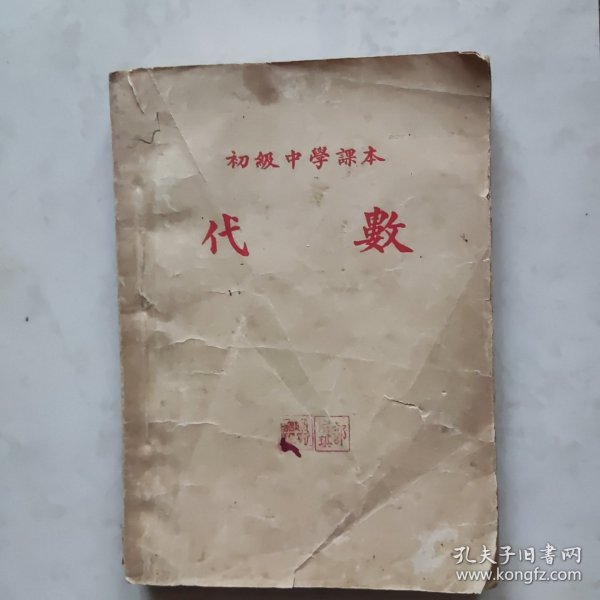 初級中學課本
代數
孔夫子旧书网
www.kongfz.com